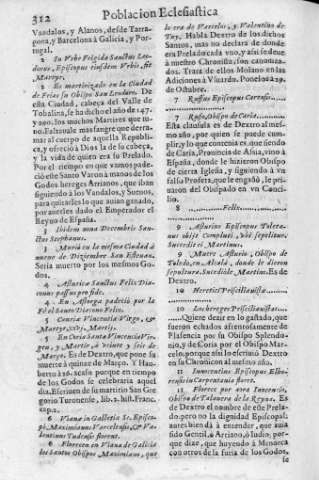 312 Poblacion Eclesiastica
Vandalos, y Alanos, desde Tarra-
gona, y Barcelona à Galicia, y Por-
tugal.
2 In Vrbe Frigida Sanctus Leu-
dorus, Episcopus eiusdem Vrbis, fit
Martyr.
2 Es martirizado en la Ciudad
de Frias su Obispo San Leudoro. De
esta Ciudad, cabeça del Valle de
Tobalina, se ha dicho el año de 147.
y 200. los muchos Martires que tu-
uo. Faltauale mas sangre que derra-
mar al cuerpo de aquella Republi-
ca, y ofrecio à Dios la de su cabeça,
y la vida de quien era su Prelado.
Por el tiempo en que vamos pade-
ciò este Santo Varon à manos de los
Godos hereges Arrianos, que iban
siguiendo à los Vandalos, y Sueuos,
para quitarles lo que auian ganado,
por auerles dado el Emperador el
Reyno de España.
3 Ibidem nona Decembris Sanc-
tus Stephanus.
3 Muriò en la misma Ciudad à
nueue de Diziembre San Esteuan.
Seria muerto por los mesmos Go-
dos.
4 Asturica Sanctus Felix Dia-
conus passus pro fide.
4 En Astorga padeciò por la
Fè el Santo Diacono Felix.
5 Cauriæ Vincentia Virgo, &
Martyr, Martij.
5 En Coria Santa Vincencia Vir-
gen, y Martir, à veinte y seis de
Março. Es de Dextro, que pone su
muerte à quinze de Março. Y Hau-
berto à 26. acaso porque en tiempo
de los Godos se celebraria aquel
dia. Escriuen de su martirio San Gre-
gorio Turonense, lib. 2. hist. Franc.
cap. 2.
6 Vianæ in Gallecia SS. Episco-
pi, Maximianus & Va-
lentinus Tudense florent.
6 Florecen en Viana de Galicia
los Santos Obispos Maximiano, que
lo era de y Valentino de
Tuy. Habla Dextro de los dichos
Santos, mas no declara de donde
era Prelado cada vno, y assi se deue
à nuestro Chronista, son canoniza-
dos. Trata de ellos Molano en las
Adiciones à Vsuardo. Ponelos à 29.
de Octubre.
7 Ruffus Episcopus
7 Rufo, Obispo de Caria
Esta clausula es de Dextro al mes-
mo año, por quien se puede cum-
plir, y lo que contenia es, que siendo
de Caria, Prouincia de Assia, vino à
España, donde le hizieron Obispo
de cierta Iglesia, y siguiendo à vn
falso Profeta, que le engañò, le pri-
uaron del Obispado en vn Canci-
lio.
8 Felix
9 Asturius Episcopus Toleta-
nus obijt Compluti, vbi sepelitur.
Succedit ei Martinus.
9 Muere Asturio, Obispo de
Toledo, en Alcalà, donde le dieron
sepultura. Sucedióle Martino. Es de
Dextro.
10 Heretici Priscillianistæ
10 Los hereges Priscilianistas
Quiere dezir en lo gastado, que
fueron echados afrentosamente de
Plasencia por su Obispo Splendo-
nio, y de Coria por el Obispo Mar-
celo, porque assi lo escriuiò Dextro
en su Chronicon al mesmo año.
11 Innocentius Episcopus Elbo-
rensis in Carpentania floret.
11 Florece por aora Inocencio,
Obispo de Talauera de la Reyna. Es
de Dextro el nombre de este Prela-
do, pero no la dignidad Episcopal:
aunque bien dà à entender, que auia
sido Gentil, ò Arriano, ò Iudio, por-
que dize, que huyendo à Menorca
con otros de la furia de los Godos,
se